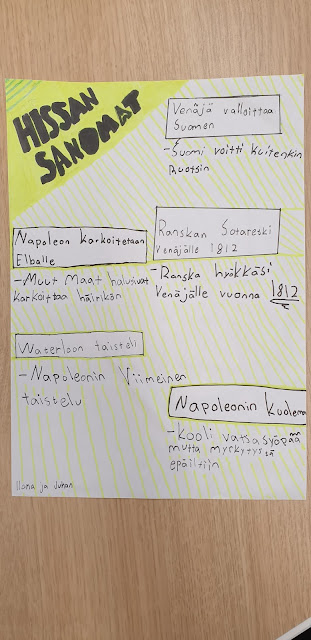 HISSAN
SANOMAT
Venäjä valloittaa
Suomen
-Suomi voitti kuitenkin
Ruotsin
Napoleon karkoitetaan
Elballe
-Muut maat halusivat
karkoittaa häirikön
Ranskan Sotaretki
Venäjälle 1812
-Ranska hyökkäsi
Venäjälle vuonna 1812
Waterloon taisteli
-Napoleonin Viimeinen
taistelu
Napoleonin kuolema
-Kooli vatsasyöpää
mutta myrkytys tä
epäiltiin
Ilona ja Juhan